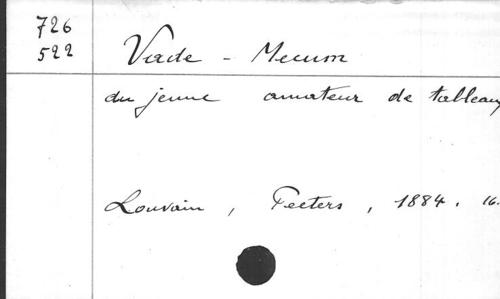 726
522
Vade - Mecum
du jeune amateur de tableaux
Louvain, Peeters, 1884. 16.